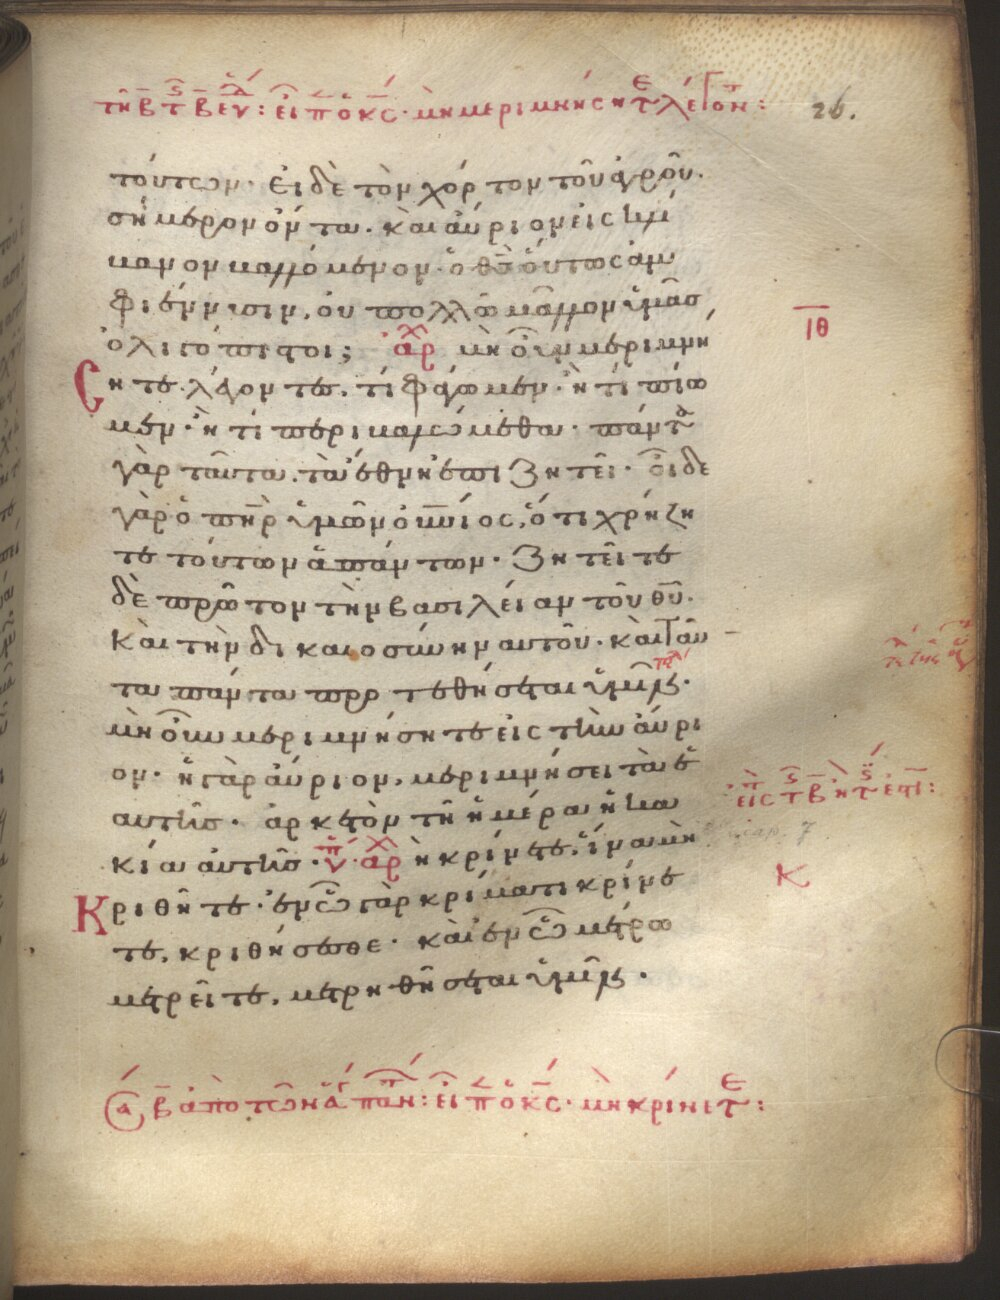 τῆ β τ β ευ: εἶπ ὁ κς· μὴ μεριμνήσητε λέγον:
26.
τούτων· εἰ δὲ τὸν χόρτον τοῦ ἀγροῦ·
σήμερον ὄντα· καὶ αὔριον εἰς κλί
βανον βαλλόμενον· ὁ θς οὕτως ἀμ
φιέννισιν, οὐ πολλῶ μᾶλλον ὑμᾶσ
ὀλιγόπιστοι; ἀρχ μὴ οὖν μεριμνή
ιθ
σητε λέγοντες, τί φάγωμεν· ἢ τί πίω
μεν· ἢ τί περιβαλώμεθα· πάντα
γὰρ ταῦτα, τὰ ἔθνη ἐπιζητεῖ· οἶδε
γὰρ ὁ πηρ ὑμῶν ὁ οὐνιος, ὅτι χρήζη
τε τούτων ἁπάντων· ζητεῖτε
δὲ πρῶτον τὴν βασιλείαν τοῦ θυ·
καὶ τὴν δικαιοσύνην αὐτοῦ· καὶ ταῦ
τα πάντα προστεθήσεται ὑμῖν·
μὴ οὖν μεριμνήσητε εἰς τὴν αὔρι
ον· ἡ γὰρ αὔριον, μεριμνήσει τὰ ἑ
εἰς τ β
αυτῆσ· ἀρκετὸν τῆ ἡμέρα ἡ κα
κία αὐτῆσ· ἀρχ μὴ κρίνετε, ἵνα μὴ
Κ
κριθῆτε· ἐν ᾧ γὰρ κρίματι κρίνε
τε, κριθήσεσθε· καὶ ἐν ᾧ μέτρω
μετρεῖτε, μετρηθήσεται ὑμῖν·
β ἀπὸ τῶν ἁγ πάν: εἶπ ὁ κς· μὴ κρίνετε: